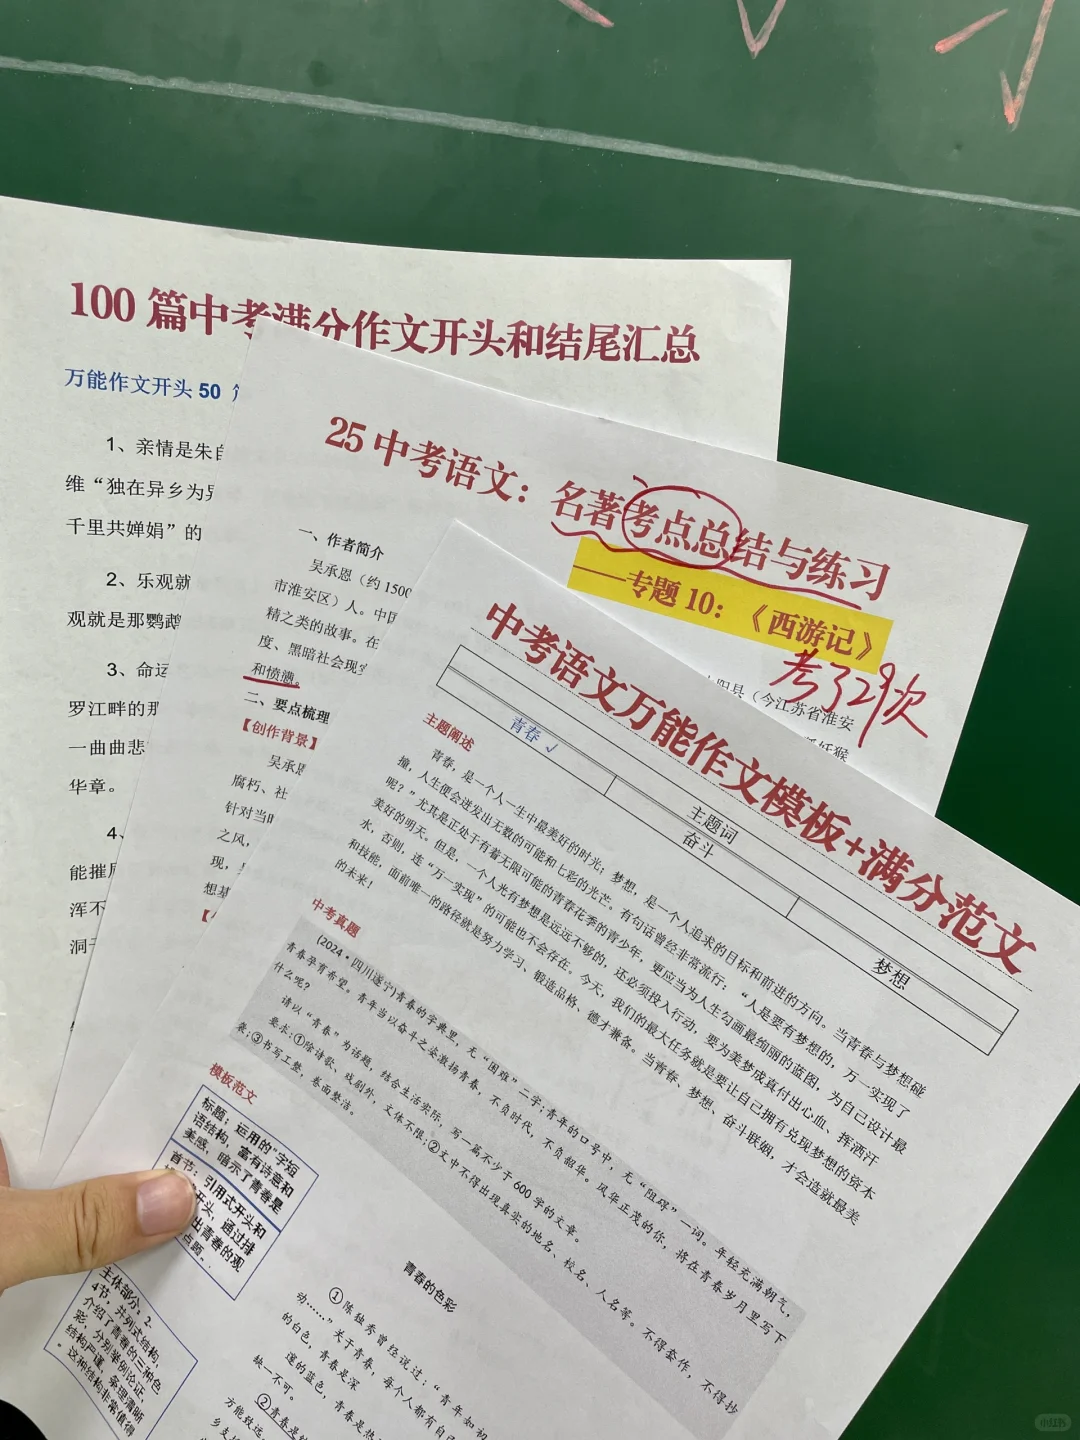 100 篇中考满分作文开头和结尾汇总
万能作文开头 50
1、亲情是朱自
维“独在异乡为异
千里共婵娟”的
2、乐观就
观就是那鹦鹉
3、命运
罗江畔的那
一曲曲悲
华章。
4、
能摧
浑不
洞
25 中考语文：名著考点总结与练习
——专题 10：《西游记》
考了29次
一、作者简介
吴承恩（约 1500
山阳县（今江苏省淮安
市淮安区）人。中国
精之类的故事。在
度、黑暗社会现实
和愤懑。
二、要点梳理
【创作背景】
吴承恩
腐朽、社
针对当时
之风，
现，
想基
中考语文万能作文模板+满分范文
主题词
青春 ✓
奋斗
梦想
主题阐述
青春，是一个人一生中最美好的时光；梦想，是一个人追求的目标和前进的方向。当青春与梦想碰
撞，人生便会迸发出无数的可能和七彩的光芒。有句话曾经非常流行：“人是要有梦想的，万一实现了
呢？”尤其是正处于有着无限可能的青春花季的青少年，更应当为人生勾画最绚丽的蓝图，为自己设计最
美好的明天。但是，一个人光有梦想是远远不够的，还必须投入行动，要为美梦成真付出心血、挥洒汗
水，否则，连“万一实现”的可能也不会存在。今天，我们的最大任务就是要让自己拥有兑现梦想的资本
和技能，面前唯一的路径就是努力学习、锻造品格、德才兼备。当青春、梦想、奋斗联姻，才会造就最美
的未来！
中考真题
（2024·四川遂宁）青春的字典里，无“困难”二字；青年的口号中，无“阻碍”一词。年轻充满朝气，
青春孕育希望。青年当以奋斗之姿激扬青春，不负时代，不负韶华。风华正茂的你，将在青春岁月里写下
什么呢？
请以“青春”为话题，结合生活实际，写一篇不少于 600 字的文章。
要求：①除诗歌、戏剧外，文体不限；②文中不得出现真实的地名、校名、人名等。不得套作，不得抄
袭；③书写工整，卷面整洁。
模板范文
标题：运用的“字短
语结构，富有诗意和
美感，暗示了青春是
首节：引用式开头和
开头，通过排
出青春的观
点题”.
主体部分：2-
4节，并列式结构，
介绍了青春的三种色
彩，分别举例论证，
结构严谨，条理清晰
。这种结构非常值得
青春的色彩
①陈独秀曾经说过：“青年如初
动……”关于青春，每个人都有自己
的白色，青春是深
邃的蓝色，青春是热
缺一不可。
②青春是
方能致远。
小红书